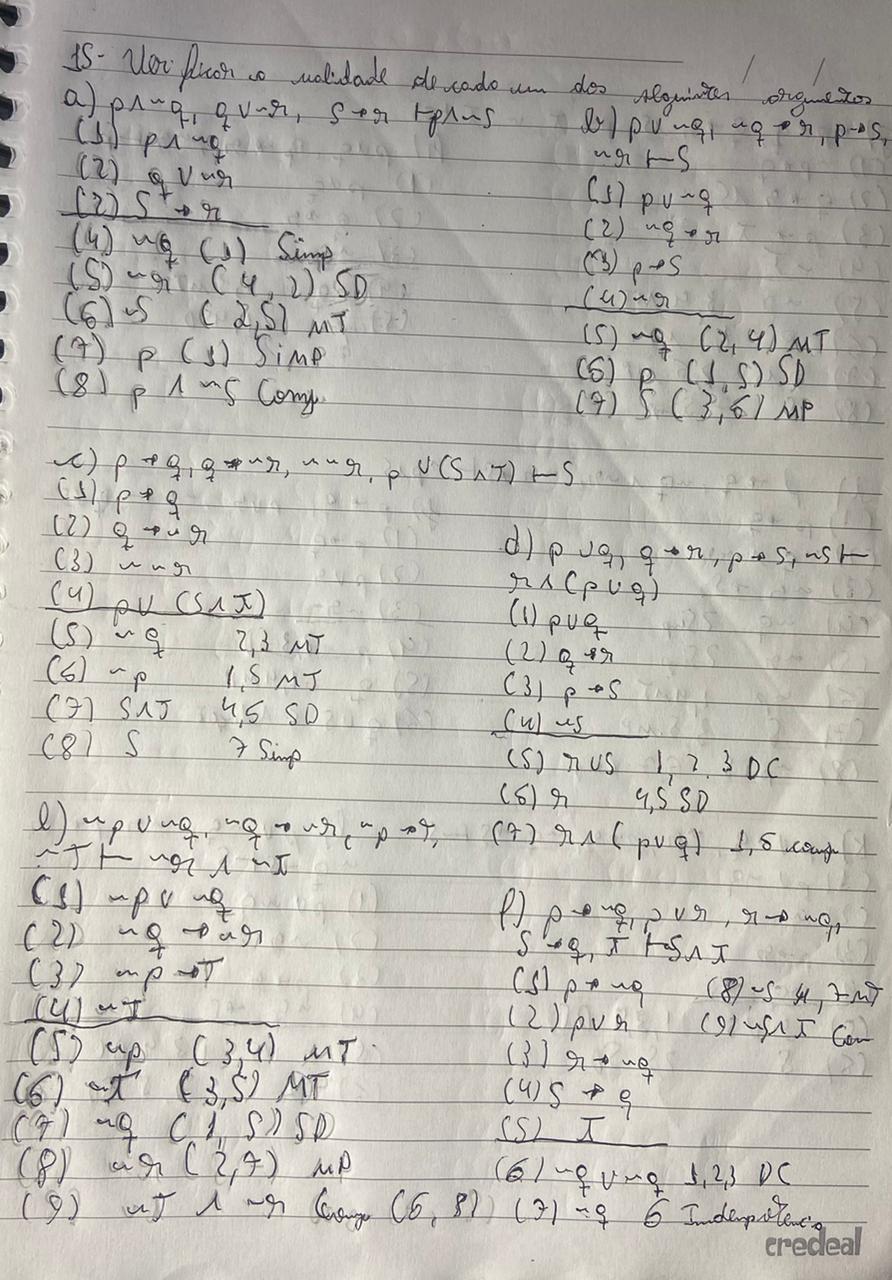 15- Verificar a validade de cada um dos seguintes argumentos
a) p ∧ ~q, q ∨ ~r, s → r ⊢ p ∧ ~s
(1) p ∧ ~q
(2) q ∨ ~r
(2) S → r
(4) ~q (1) Simp
(5) ~r (4, 2) SD
(6) ~S (2,5) MT
(7) p (1) SiMP
(8) p ∧ ~S Conj
b) p ∨ ~q, ~q → r, p → S,
~r ⊢ S
(1) p ∨ ~q
(2) ~q → r
(3) p → S
(4) ~r
(5) ~q (2,4) MT
(6) p (1,5) SD
(7) S (3,6) MP
c) p → q, q → ~r, ~~r, p ∨ (S ∧ T) ⊢ S
(1) p → q
(2) q → ~r
(3) ~~r
(4) p ∨ (S ∧ T)
(5) ~q 2,3 MT
(6) ~p 1,5 MT
(7) S ∧ T 4,6 SD
(8) S 7 Simp
d) p ∨ q, q → r, p → S, ~S ⊢
r ∧ (p ∨ q)
(1) p ∨ q
(2) q → r
(3) p → S
(4) ~s
(5) r ∨ S 1, 2, 3 DC
(6) r 4,5 SD
(7) r ∧ (p ∨ q) 1,6 conj
e) ~p ∨ ~q, ~q → ~r, ~p → T,
~T ⊢ ~r ∧ ~T
(1) ~p ∨ ~q
(2) ~q → ~r
(3) ~p → T
(4) ~T
(5) ~p (3,4) MT
(6) ~T (3,5) MT
(7) ~q (1, 5) SD
(8) ~r (2,7) MP
(9) ~T ∧ ~r Conj (6, 8)
f) p → ~q, p ∨ r, r → ~q,
S → q, T ⊢ S ∧ T
(1) p → ~q
(2) p ∨ r
(3) r → ~q
(4) S → q
(5) T
(6) ~q ∨ ~q 1,2,3 DC
(7) ~q 6 Indenpotência
(8) ~S 4, 7 MT
(9) ~S ∧ T Con
credeal